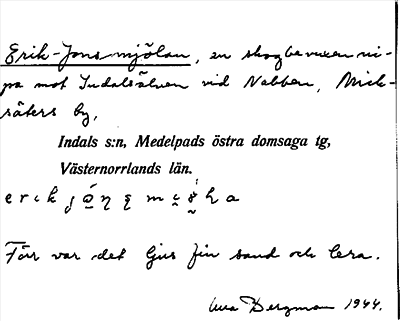 Erik-Jonsmjölan, en skogbevuxen ni-
pa mot Indalsälven vid Nabben, Mick-
räters by,
Indals s:n, Medelpads östra domsaga tg,
Västernorrlands län.
Förr var det ljus fin sand och lera.
Bergman 1944.